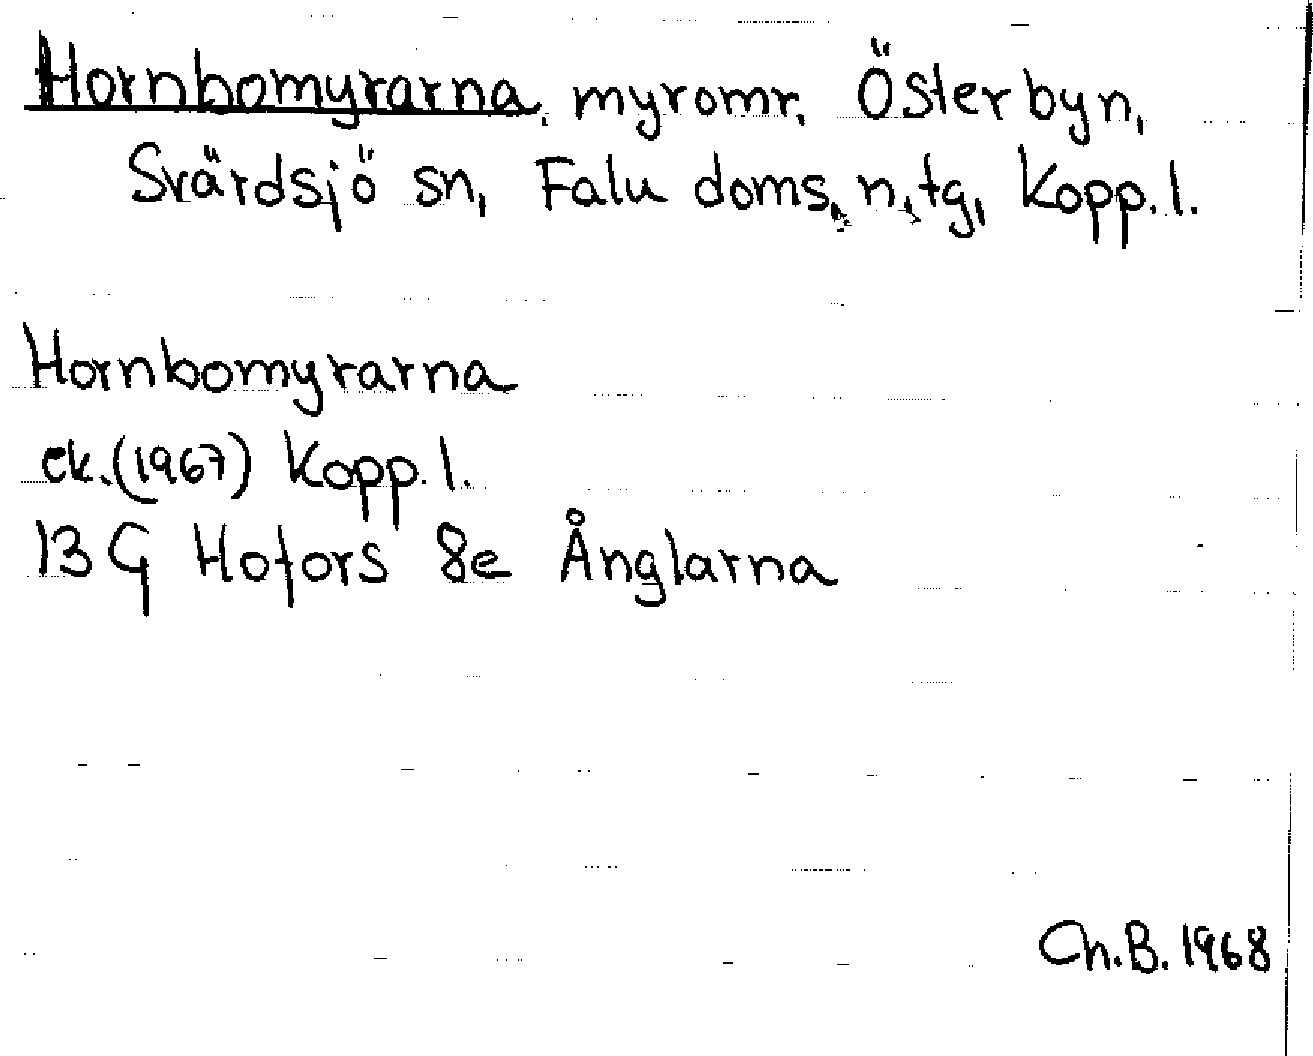 Hornbomyrarna, myromr. Österbyn,
Svärdsjö sn, Falu doms. n. tg, Kopp. l.
Hornbomyrarna
ek. (1967) Kopp. l.
13 G Hofors 8e Ånglarna
Ch.B. 1968